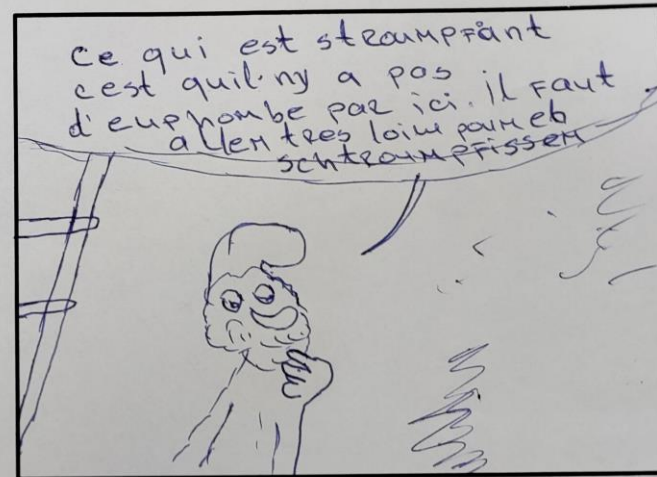 ce qui est stroumpfant
c'est quil ny a pas
d'euphombe par ici. il faut
allem tres loim poumeb
schtroumpfissem